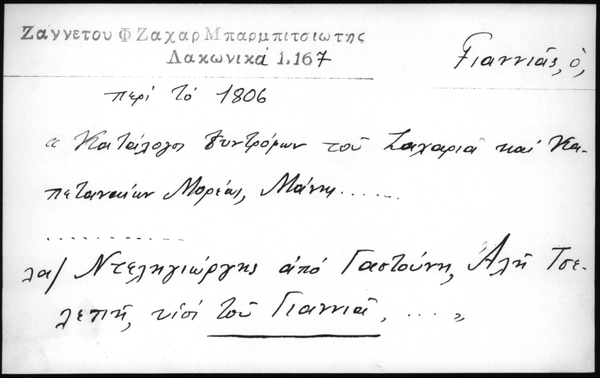 Ζαννετου Φ Ζαχαρ Μπαρμπιτσιωτης
Λακωνικά 1.167
Γιαννιᾶς, ὁ,
περί τό 1806
" Κατάλογοι Συντρόφων τοῦ Ζαχαριᾶ καί Κα-
πεταναίων Μορέας, Μάνης......
..........
λα/ Ντεληγιώργης ἀπό Γαστούνη, Ἀλῆ Τσε-
λεπῆ, υἱοί τοῦ Γιαννιᾶ, .... "